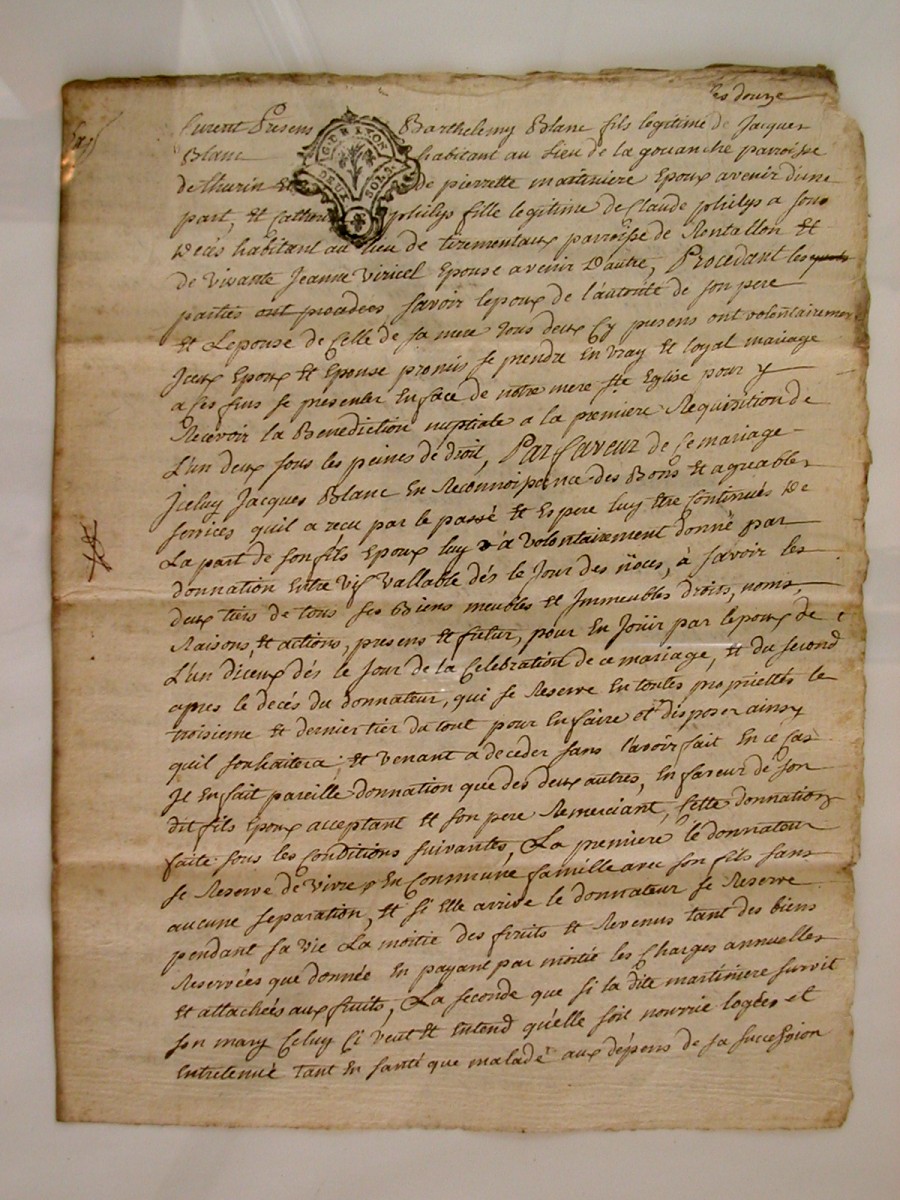 les douze
furent Presens Barthelemy Blanc fils legitime de Jacques
Blanc habitant au Lieu de la gouanche parroisse
de thurin Et de pierrette martiniere Epoux avenir d'une
part, Et Catherine philys fille legitime de Claude philys a son
Decés habitant au lieu de tiremental parroisse de Rontallon Et
de Vivante Jeanne Viricel Epouse avenir D'autre, Procedant les
parties ont procedees Savoir lepoux de l'autorité de son pere
Et Lepouse de Celle de sa mere tous deux Cy presens ont volontairement
Jceux Epoux Et Epouse promis se prendre En vray Et loyal mariage
a Ces fins se presenter En face de notre mere Ste Eglise pour y
Recevoir la Benediction nuptiale a la premiere Requisition de
L'un deux sous les peines de droit, Par faveur de Ce mariage
Jceluy Jacques Blanc En Reconnoissance des Bons Et agreables
services quil a recu par le passé Et Espere luy être Continués De
La part de son fils Epoux luy a volontairement donné par
donnation Entre vifs vallable dés le Jour des nôces, à savoir les
deux tiers de tous ses Biens meubles Et Immeubles droits, noms,
Raisons, Et actions, presens Et futur, pour En Joüir par lepoux de
L'un diceux dés le Jour de la Celebration de ce mariage, Et du second
apres le decés du donnateur, qui se Reserve En toutes proprietés le
troisieme Et dernier tier du tout pour En faire Et disposer ainsy
quil souhaitera, Et venant a deceder sans l'avoir fait En ce cas
Il En fait pareille donnation que des deux autres, En faveur de son
dit fils Epoux acceptant Et son pere Remerciant, Cette donnation
faite sous les Conditions suivantes, La premiere le donnateur
se Reserve de Vivre En Commune famille avec son fils sans
aucune separation, Et si Elle arrive le donnateur se Reserve
pendant sa vie La moitié des fruits Et Revenus tant des biens
Reservées que donnée En payant par moitié les Charges annuelles
Et attachées aux fruits, La seconde que si la dite martiniere survit
son mary Celuy Ci veut Et Entend qu'elle soit nourrie logées et
Entretenuë Tant En santé que malade aux dépens de sa succession
GEN LYON
DEUX SOLS